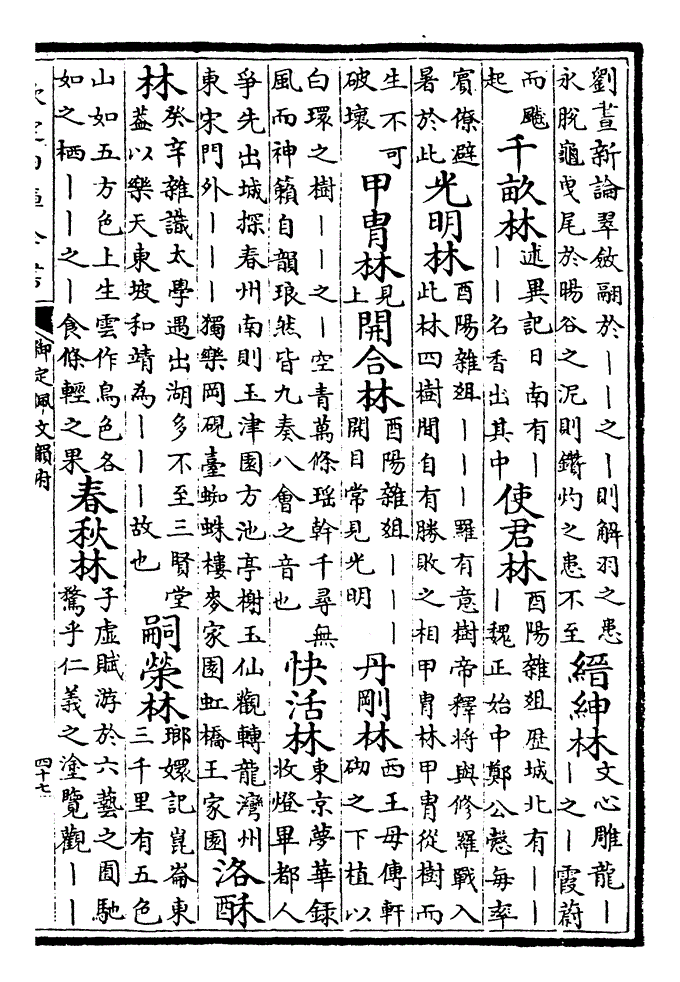 劉晝新論翠斂翮於丨丨之丨則解羽之患
永脫龜曳尾於暘谷之泥則鑽灼之患不至
縉紳林
文心雕龍丨
丨之丨霞蔚
而飈
起
千畝林
述異記日南有丨
丨丨名香出其中
使君林
酉陽雜俎歴城北有丨丨
丨魏正始中鄭公慤每率
賓僚避
暑於此
光明林
酉陽雜俎丨丨丨羅有意樹帝釋將與修羅戰入
此林四樹間自有勝敗之相甲胄林甲胄從樹而
生不可
破壞
甲胄林
見
上
開合林
酉陽雜俎丨丨丨
開日常見光明
丹剛林
西王母傳軒
砌之下植以
白環之樹丨丨之丨空青萬條瑶幹千尋無
風而神籟自韻琅然皆九奏八會之音也
快活林
東京夢華録
收燈畢都人
爭先出城探春州南則玉津園方池亭榭玉仙觀轉龍灣州
東宋門外丨丨丨獨樂岡硯臺蜘蛛樓麥家園虹橋王家園
洛酥
林
癸辛雜識太學遇出湖多不至三賢堂
蓋以樂天東坡和靖為丨丨丨故也
嗣榮林
瑯嬛記崑崙東
三千里有五色
山如五方色上生雲作鳥色各
如之栖丨丨之丨食條輕之果
春秋林
子虛賦游於六藝之囿馳
騖乎仁義之塗覽觀丨丨
欽定四庫全書
御定佩文韻府
四十七